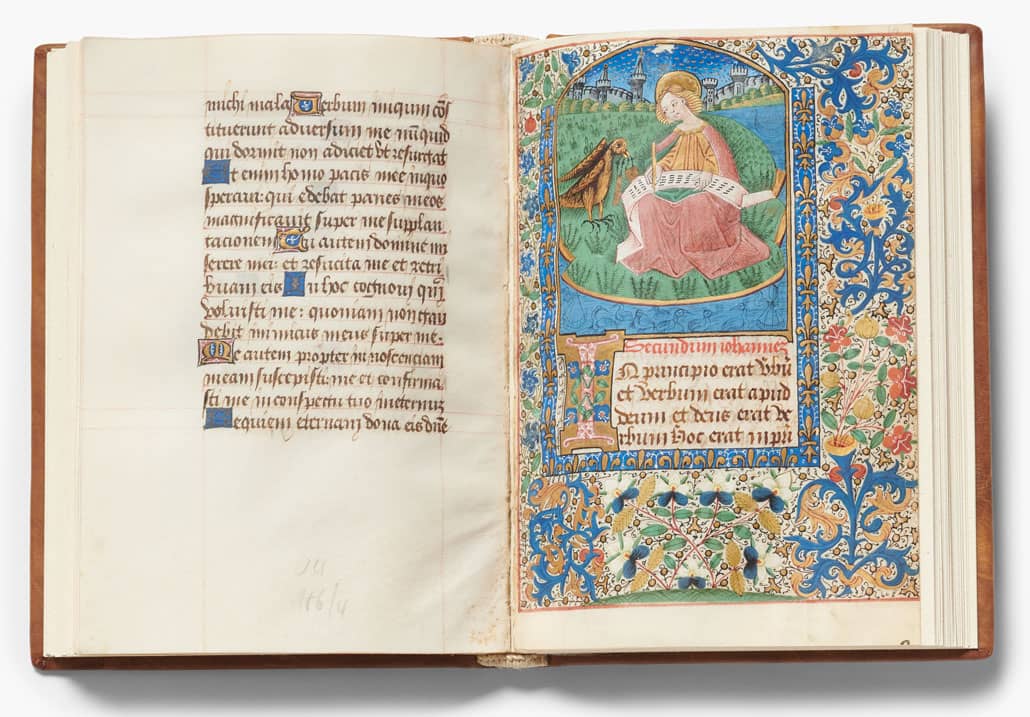 michi mala Verbum iniquum cōs
tituerunt adversum me nūquid
qui dormit non adiciet vt resurgat
Et enim homo pacis mee in quo
speravi: qui edebat panes meos
magnificavit super me supplan
tacionem Tu autem domine mi
serere mei: et resucita me et retri
buam eis In hoc cognovi qm̄
voluisti me: quoniam non gau
debit inimicus meus super me:
Me autem propter innocenciam
meam suscepisti: me et confirma
sti me in conspectu tuo ineternuz
Requiem eternam dona eis dn̄e
Secundum iohannez
IN principio erat v̄bū
et verbum erat apud
deum et deus erat ve
rbum hoc erat in pri